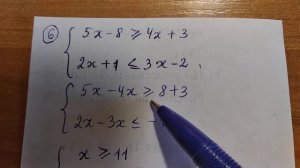 6
5x-8 ≥ 4x+3
2x+1 ≤ 3x-2,
5x-4x ≥ 8+3
2x-3x ≤ -
x ≥ 11